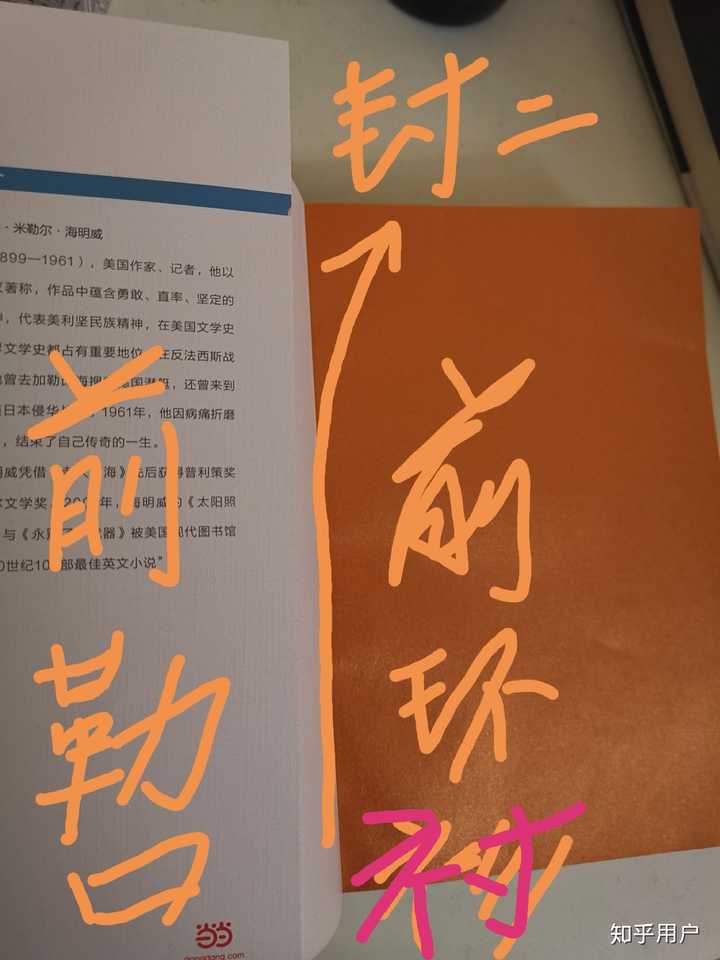 封二
·米勒尔·海明威
899—1961），美国作家、记者，他以
著称，作品中蕴含勇敢、直率、坚定的
，代表美利坚民族精神，在美国文学史
文学史都占有重要地位。在反法西斯战
曾去加勒比海搜索德国潜艇，还曾来到
日本侵华 1961年，他因病痛折磨
，结束了自己传奇的一生。
明威凭借《老人与海》先后获得普利策奖
文学奖。200 年，海明威的《太阳照
与《永别了，武器》被美国现代图书馆
0世纪100部最佳英文小说”
前
勒
口
前
环
衬
当当
dangdang.com
知乎用户